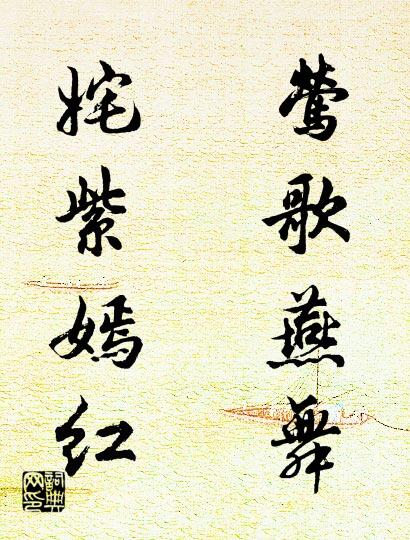 莺歌燕舞
姹紫嫣红
詞典
网印